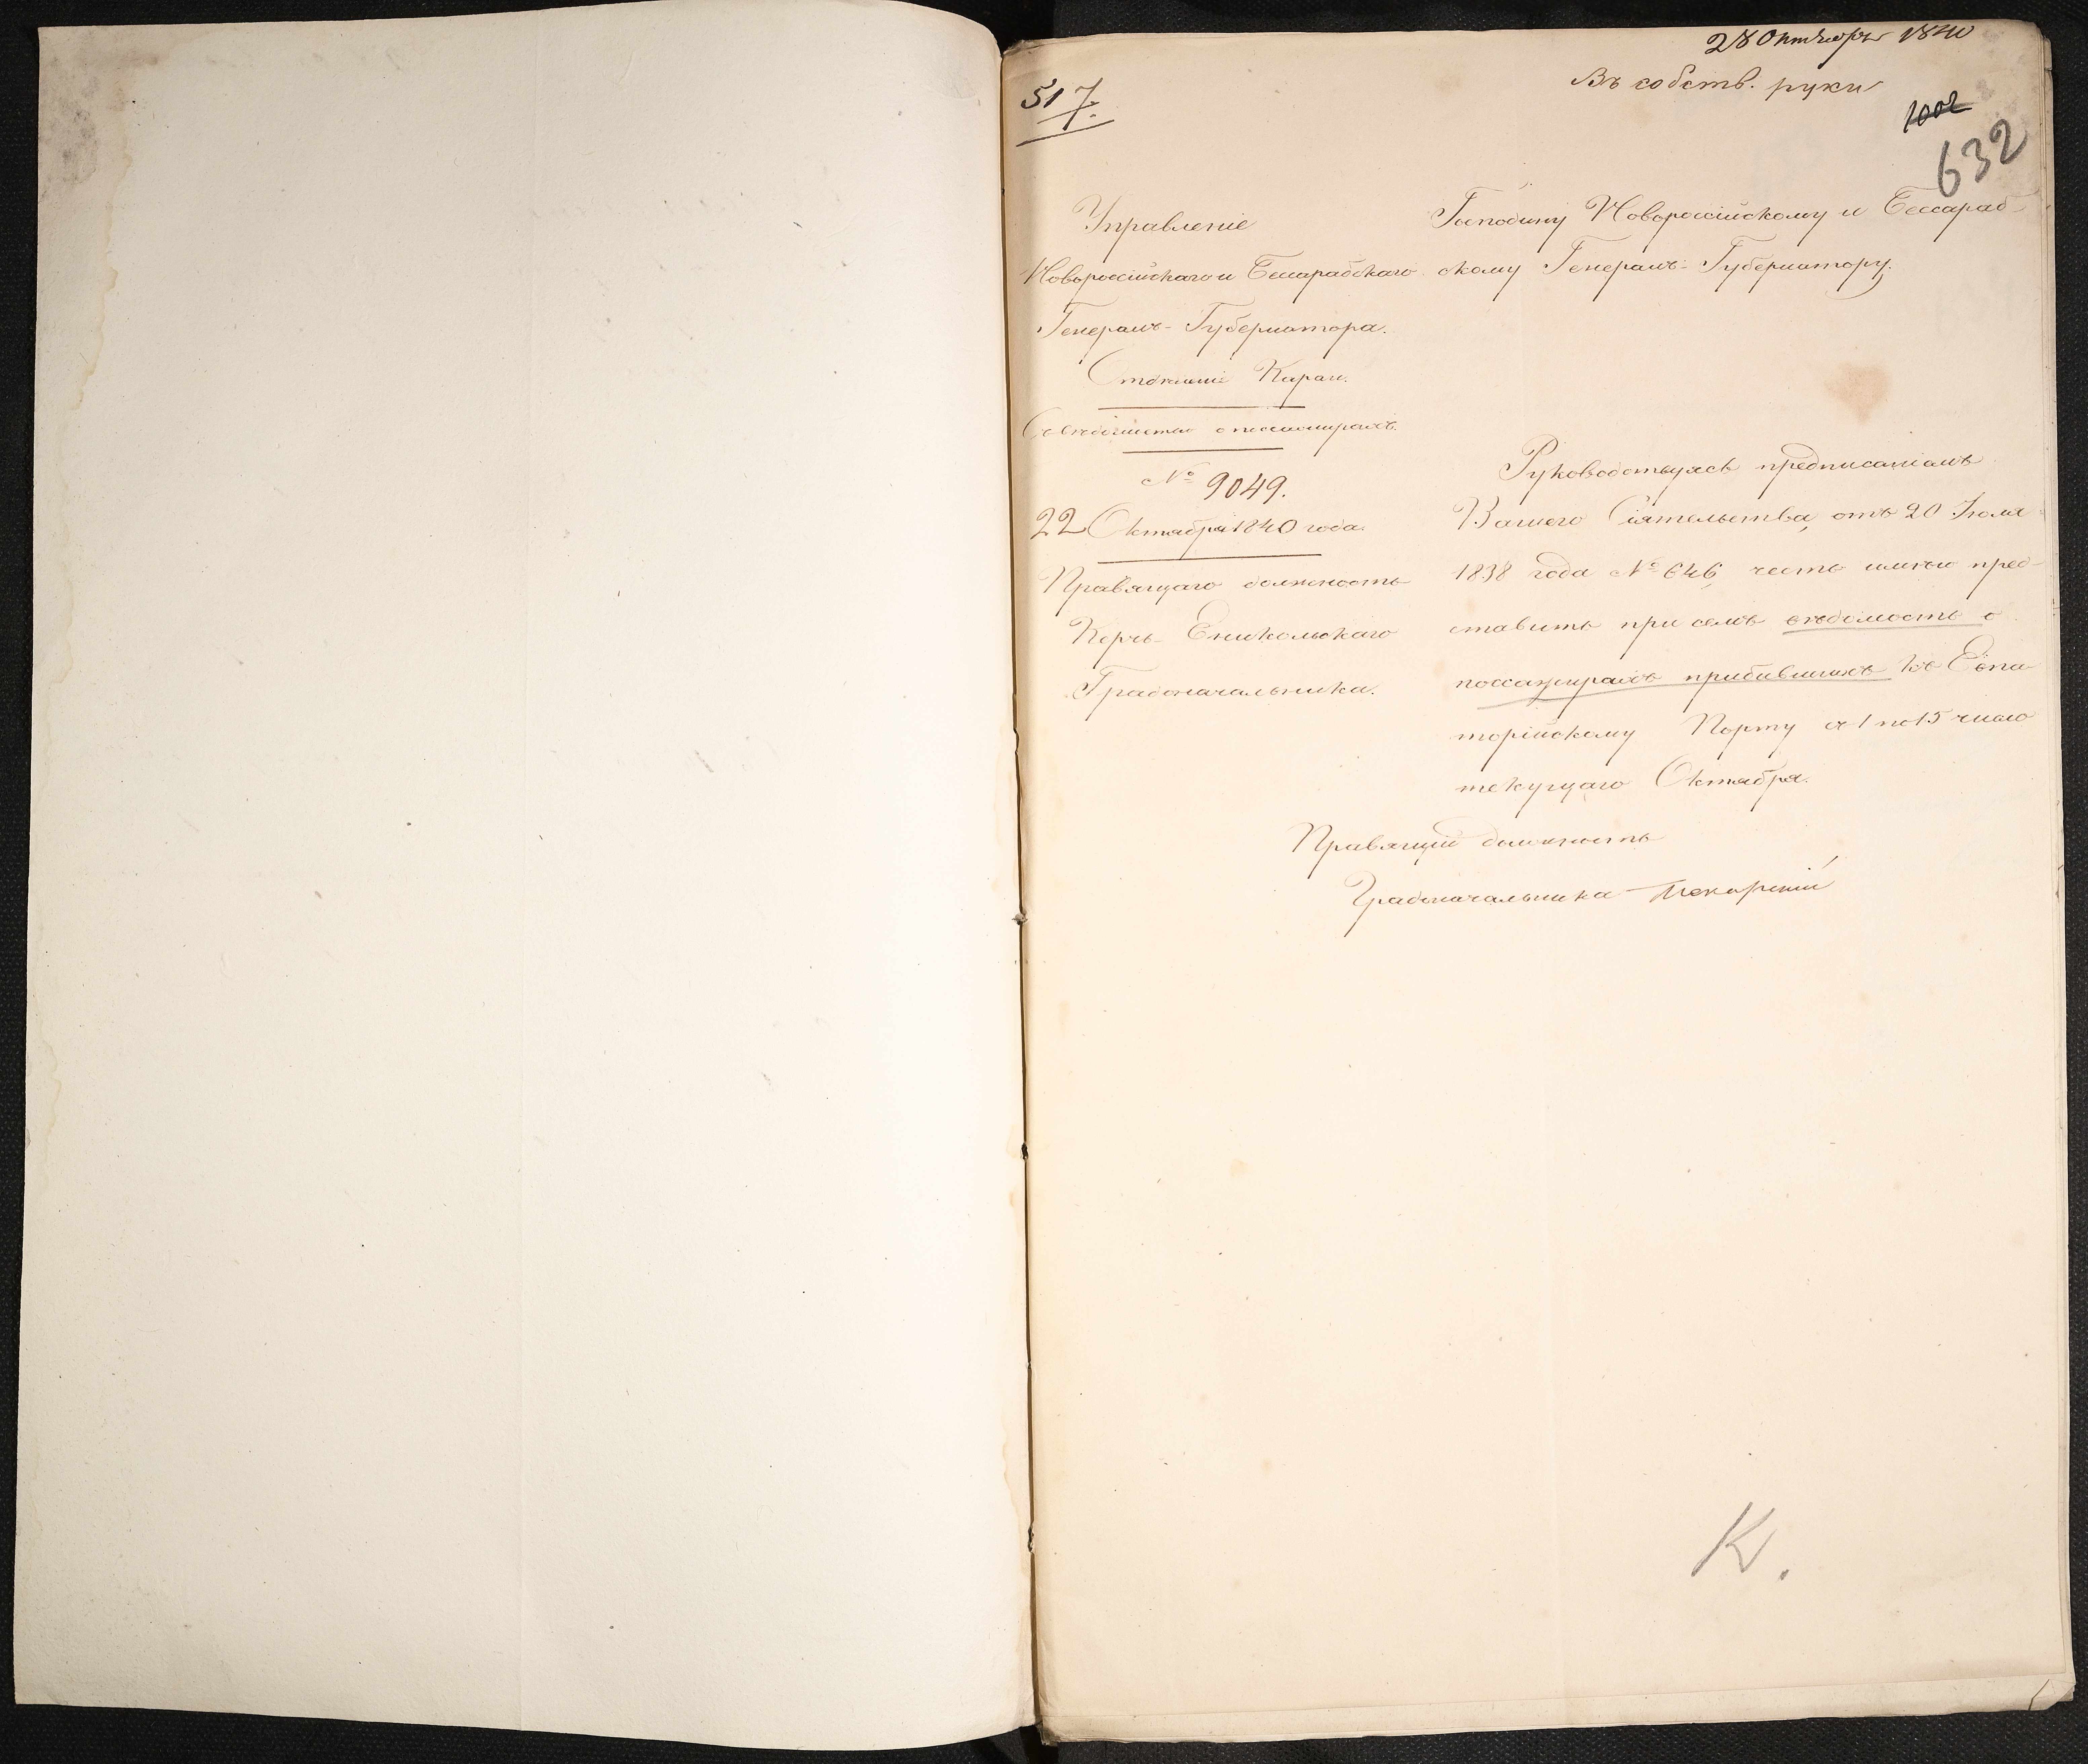 28 Октября 1840
Въ собств. руки
517.
1002
632
Управленіе
Новороссійскаго и Бессарабскаго
Генералъ-Губернатора.
Отдѣленіе Каран.
Съ вѣдомостью о пассажирахъ.
№ 9049.
22 Октября 1840 года.
Правящаго должность
Керчь-Еникольскаго
Градоначальника.
Господину Новороссійскому и Бессараб-
скому Генералъ-Губернатору.
Руководствуясь предписаніемъ
Вашего Сіятельства, отъ 20 Іюля
1838 года № 646, честь имѣю пред-
ставить при семъ вѣдомость о
поссажирахъ прибывшихъ къ Евпа
торійскому Порту съ 1 по 15 число
текущаго Октября.
Правящій должность
Градоначальника
К.